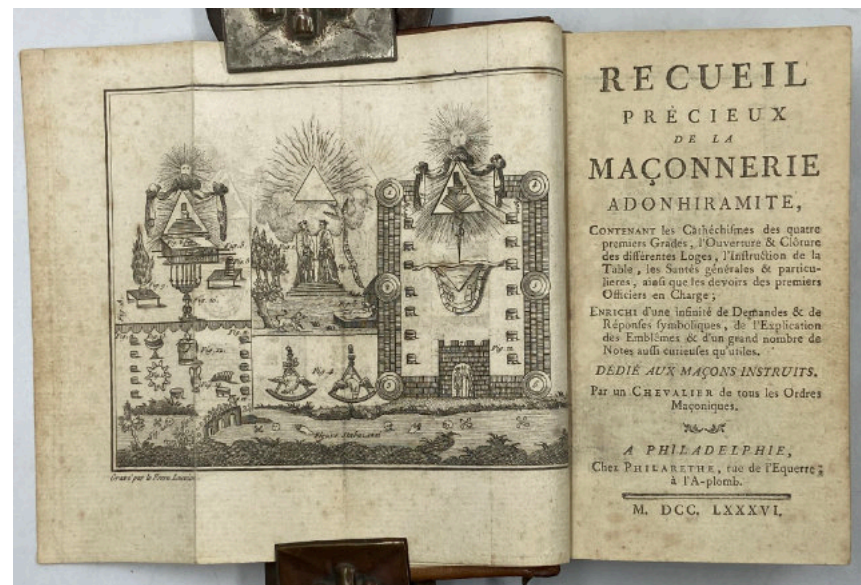 Gravé par le Frere
RECUEIL
PRÉCIEUX
DE LA
MAÇONNERIE
ADONHIRAMITE,
CONTENANT les Cathéchismes des quatre
premiers Grades, l'Ouverture & Clôture
des différentes Loges, l'Instruction de la
Table, les Santés générales & particu-
lieres, ainsi que les devoirs des premiers
Officiers en Charge;
ENRICHI d'une infinité de Demandes & de
Réponses symboliques, de l'Explication
des Emblêmes & d'un grand nombre de
Notes aussi curieuses qu'utiles.
DÉDIÉ AUX MAÇONS INSTRUITS.
Par un CHEVALIER de tous les Ordres
Maçoniques.
A PHILADELPHIE,
Chez PHILARETHE, rue de l'Equerre;
à l'A-plomb.
M. DCC. LXXXVI.